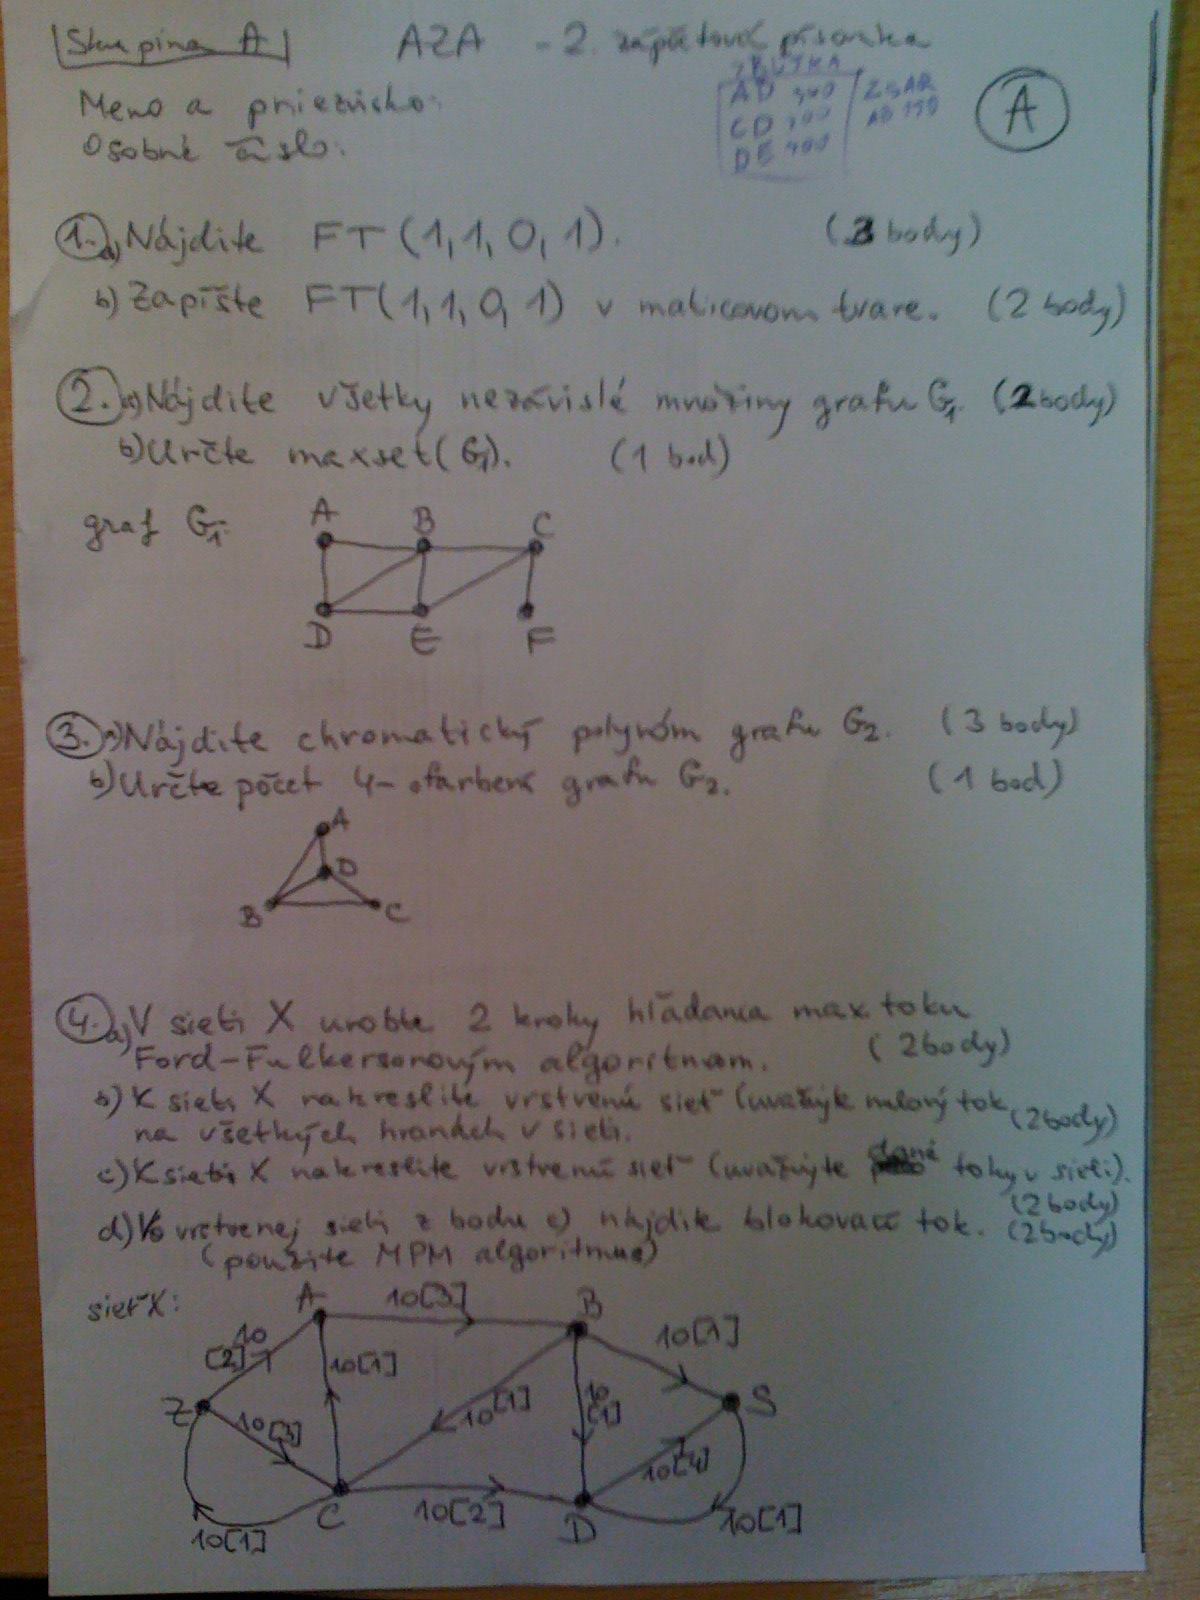 Skupina A
AZA - 2. zápočtová písomka
A
Meno a priezvisko:
Osobné číslo:
AD 300
CD 300
DE 400
AD 150
1. a) Nájdite FT(1,1,0,1). (3 body)
b) Zapíšte FT(1,1,0,1) v maticovom tvare. (2 body)
2. a) Nájdite všetky nezávislé množiny grafu G1. (2 body)
b) Určte maxset(G1). (1 bod)
graf G1:
A B C
D E F
3. a) Nájdite chromatický polynóm grafu G2. (3 body)
b) Určte počet 4-ofarbení grafu G2. (1 bod)
A
D
B C
4. a) V sieti X urobte 2 kroky hľadania max toku
Ford-Fulkersonovým algoritmom. (2 body)
b) K sieti X nakreslite vrstvenú sieť (uvažujte nulový tok
na všetkých hranách v sieti. (2 body)
c) K sieti X nakreslite vrstvenú sieť (uvažujte dané toky v sieti).
(2 body)
d) Vo vrstvenej sieti z bodu c) nájdite blokovací tok. (2 body)
(použite MPM algoritmus)
sieť X:
A 10[3] B
10 [2] 10[1] 10[1]
Z 10[3] 10[1] 10 [1] S
10[4]
C 10[2] D
10[1] 10[1]